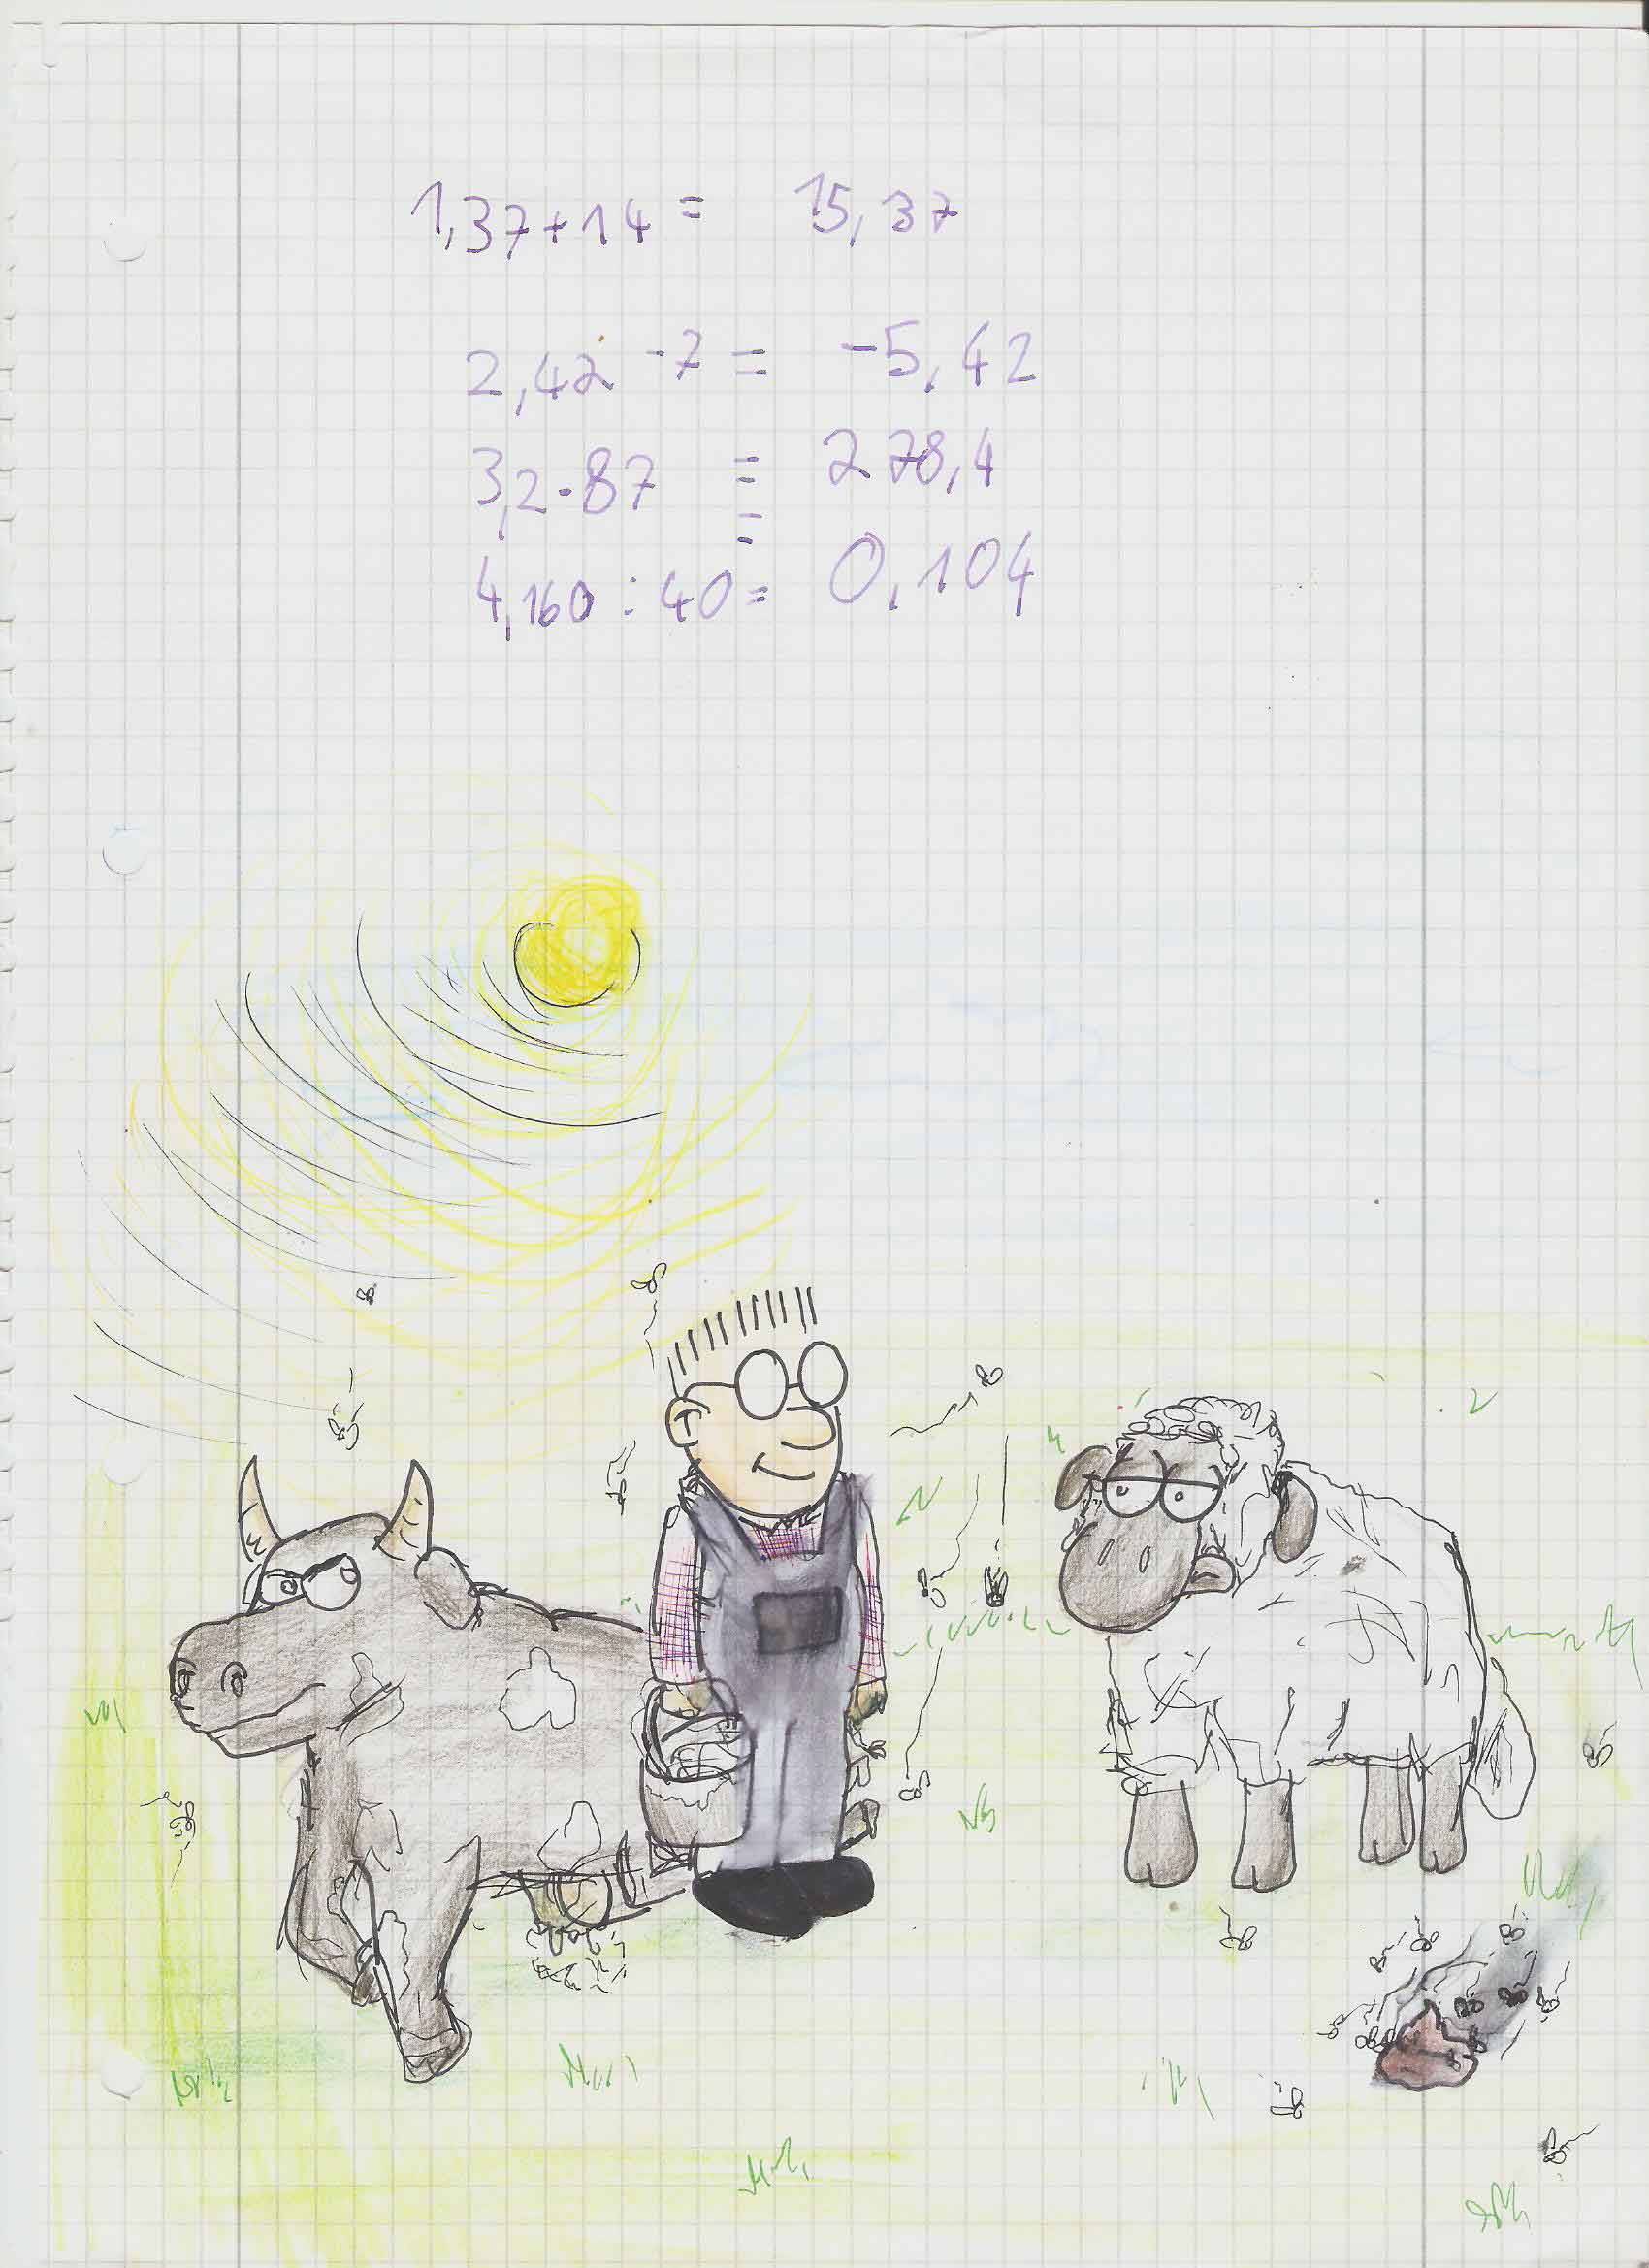 1,37+14 = 15,37
2,42 -7 = -5,42
3,2·87 = 278,4
=
4,160 : 40 = 0,104